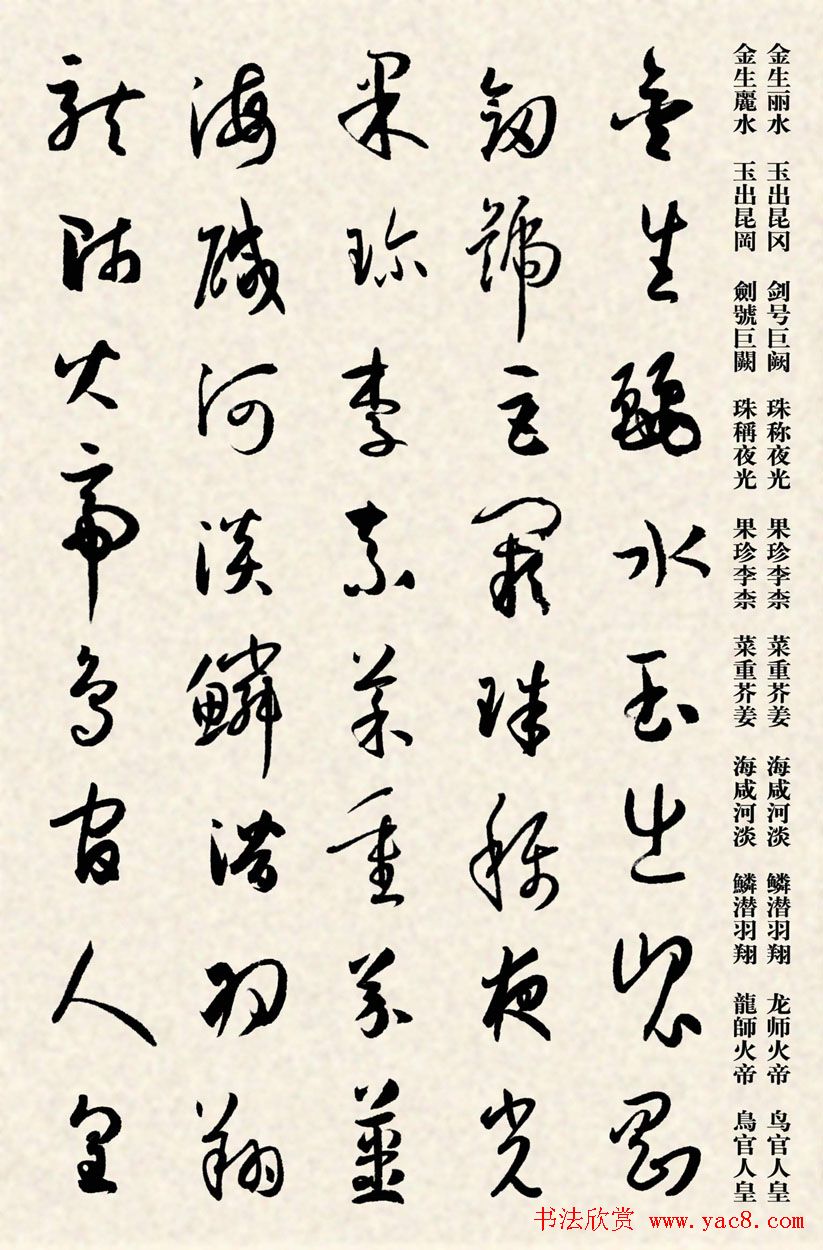 金生丽水 玉出昆冈 剑号巨阙 珠称夜光 果珍李柰 菜重芥姜 海咸河淡 鳞潜羽翔 龙师火帝 鸟官人皇
金生麗水 玉出昆岡 劍號巨闕 珠稱夜光 果珍李柰 菜重芥姜 海咸河淡 鱗潜羽翔 龍師火帝 鳥官人皇
金生麗水玉出崐岡
劒號巨闕珠稱夜光
果珍李柰菜重芥薑
海鹹河淡鱗潛羽翔
龍師火帝鳥官人皇
书法欣赏 www.yac8.com